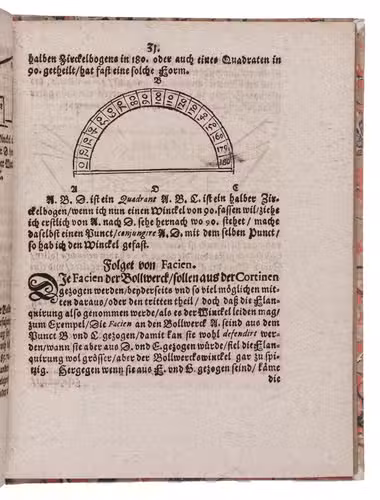 31.
halben Zirckelbogens in 180. oder auch eines Quadraten in
90. getheilt/hat fast eine solche Form.
B
10 20 30 40 50 60 70 80 90 100 110 120 130 140 150 160 170 180
A D C
A. B. D. ist ein Quadrant A. B. C. ist ein halber Zir-
ckelbogen/wenn ich nun einen Winckel von 90. fassen wil/ziehe
ich erstlich von A. nach D. sehe hernach wo 90. stehet/ mache
daselbst einen Punct/conjungire A. D. mit dem selben Punct/
so hab ich den Winckel gefast.
Folget von Facien.
DIe Facien der Bollwerck/sollen aus der Cortinen
gezogen werden/beyderseits und so viel möglichen mit-
ten daraus/oder den tritten theil/ doch daß die Flan-
quirung also genommen werde/als es der Winckel leiden mag/
zum Exempel/Die Facien an den Bollwerck A. seind aus dem
Punct B. und C. gezogen/damit kan sie wohl defendirt wer-
den/wann sie aber aus D. und E. gezogen würde/fiel die Flan-
quirung wol grösser/aber der Bollwercksswinckel gar zu spi-
tzig. Hergegen wenn sie aus F. und G. gezogen seind/ käme
die